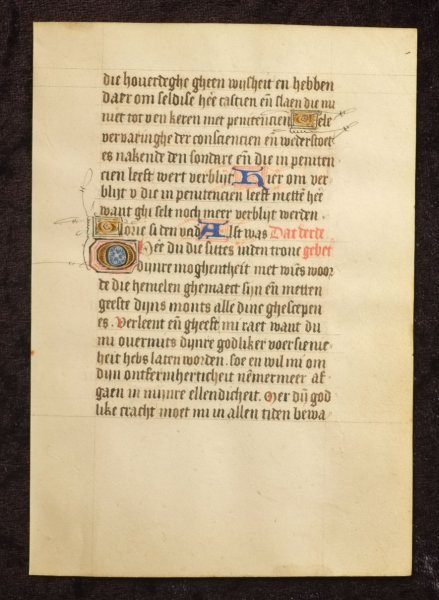 die houerdeghe gheen wijsheit en hebben
daer om seldise hēe castien eñ slaen die nu
niet tot v en keren met penitencien Vele
vervaringhe der consciencien eñ wederstoet
es nakende den sondare eñ die in peniten
cien leeft wert verblijt Hier om ver
blijt v die in penitencien leeft mettē hēe
want ghi selt noch meer verblijt werden
Glorie si den vad Alst was Dat derde
O Hēe du die sittes inden trone gebet
dijnre moghentheit met wiēs woor
de die hemelen ghemaect sijn eñ metten
geeste dijns monts alle dinc ghescepen
es. Verleent eñ gheeft mi raet want du
mi ouermits dijnre godliker voersienie
heit hebs laten worden. soe en wil mi om
dijn ontfermherticheit nēmermeer af
gaen in mijnre ellendicheit. Mer dij god
like cracht moet mi in allen tiden bewa